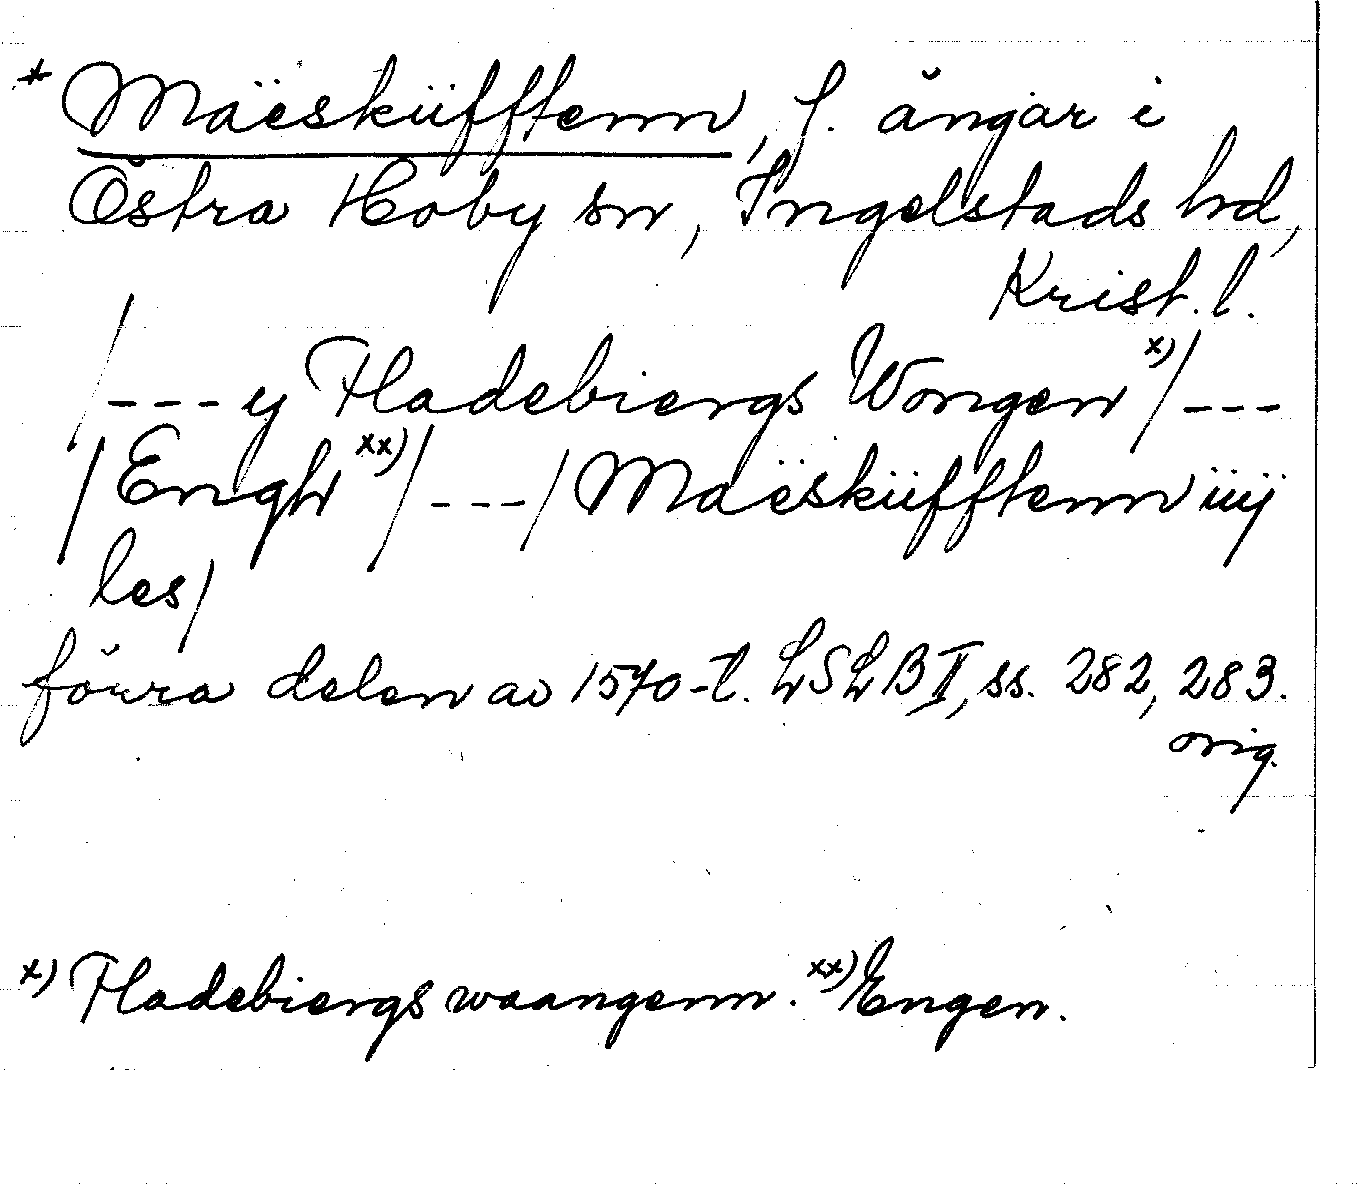 * Mäeskiifftenn, f. ängar i
Östra Hoby sn, Ingelstads hd,
Krist. l.
/--- y Fladebiergs Wongen x)/ ---
/Engh xx)/---/Maëskiifftenn iiij
les/
förra delen av 1570-t. LSLB II, ss. 282, 283.
orig.
x) Fladebiergs waangenn. xx) Engen.